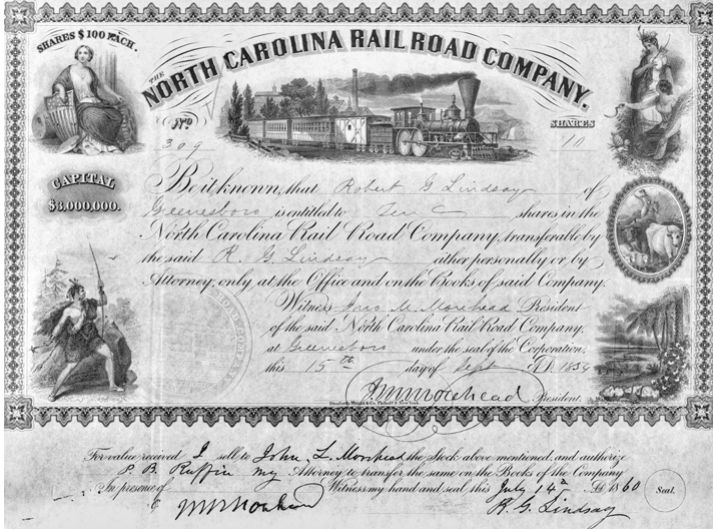 SHARES $100 EACH.
THE
NORTH CAROLINA RAIL ROAD COMPANY.
No
309
SHARES
10
CAPITAL
$3,000,000.
Be it known, that Robert G Lindsay of
Greensboro is entitled to Ten shares in the
North Carolina Rail Road Company, transferable by
the said R. G. Lindsay either personally or by
Attorney, only at the Office and on the Books of said Company.
Witness Jno M. Morehead President
of the said North Carolina Rail Road Company,
at Greensboro under the seal of the Corporation,
this 15th day of Sept A.D. 1854
J M Morehead President.
For value received I sell to John L. Morehead the Stock above mentioned, and authorize
P. B. Ruffin my Attorney to transfer the same on the Books of the Company
In presence of Witness my hand and seal this July 14th AD 1860
J M Morehead R. G. Lindsay Seal.